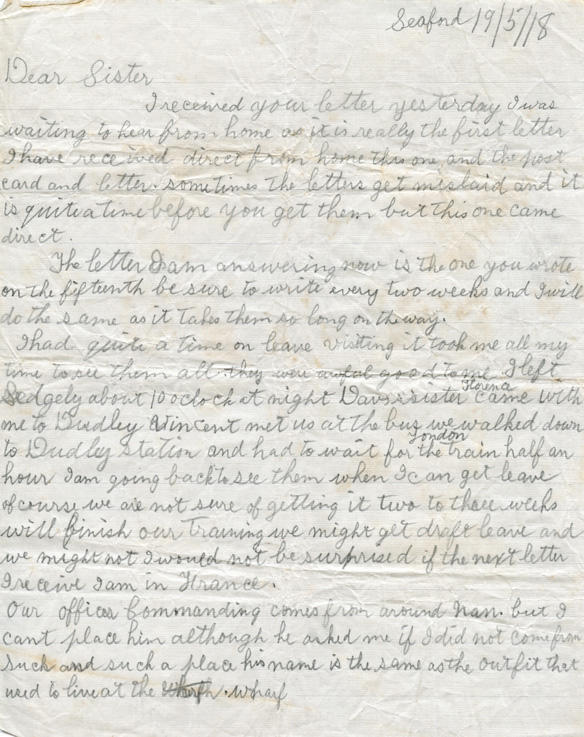 Seaford 19/5/18
Dear Sister
I received your letter yesterday I was
waiting to hear from home as it is really the first letter
I have received direct from home this one and the post
card and letter. sometimes the letters get mislaid and it
is quite a time before you get them but this one came
direct.
The letter I am answering now is the one you wrote
on the fifteenth be sure to write every two weeks and I will
do the same as it takes them so long on the way.
I had quite a time on leave visiting it took me all my
time to see them all they were awful good to me I left
Sedgely about 10 oclock at night Daves sister Florena came with
me to Dudley Vincent met us at the bus we walked down
to Dudley Station and had to wait for the London train half an
hour I am going back to see them when I can get leave
of course we are not sure of getting it two to three weeks
will finish our training we might get draft leave and
we might not I would not be surprised if the next letter
I receive I am in France.
Our offices Commanding comes from around Nan. but I
cant place him although he asked me if I did not come from
such and such a place his name is the same as the outfit that
used to live at the wharf